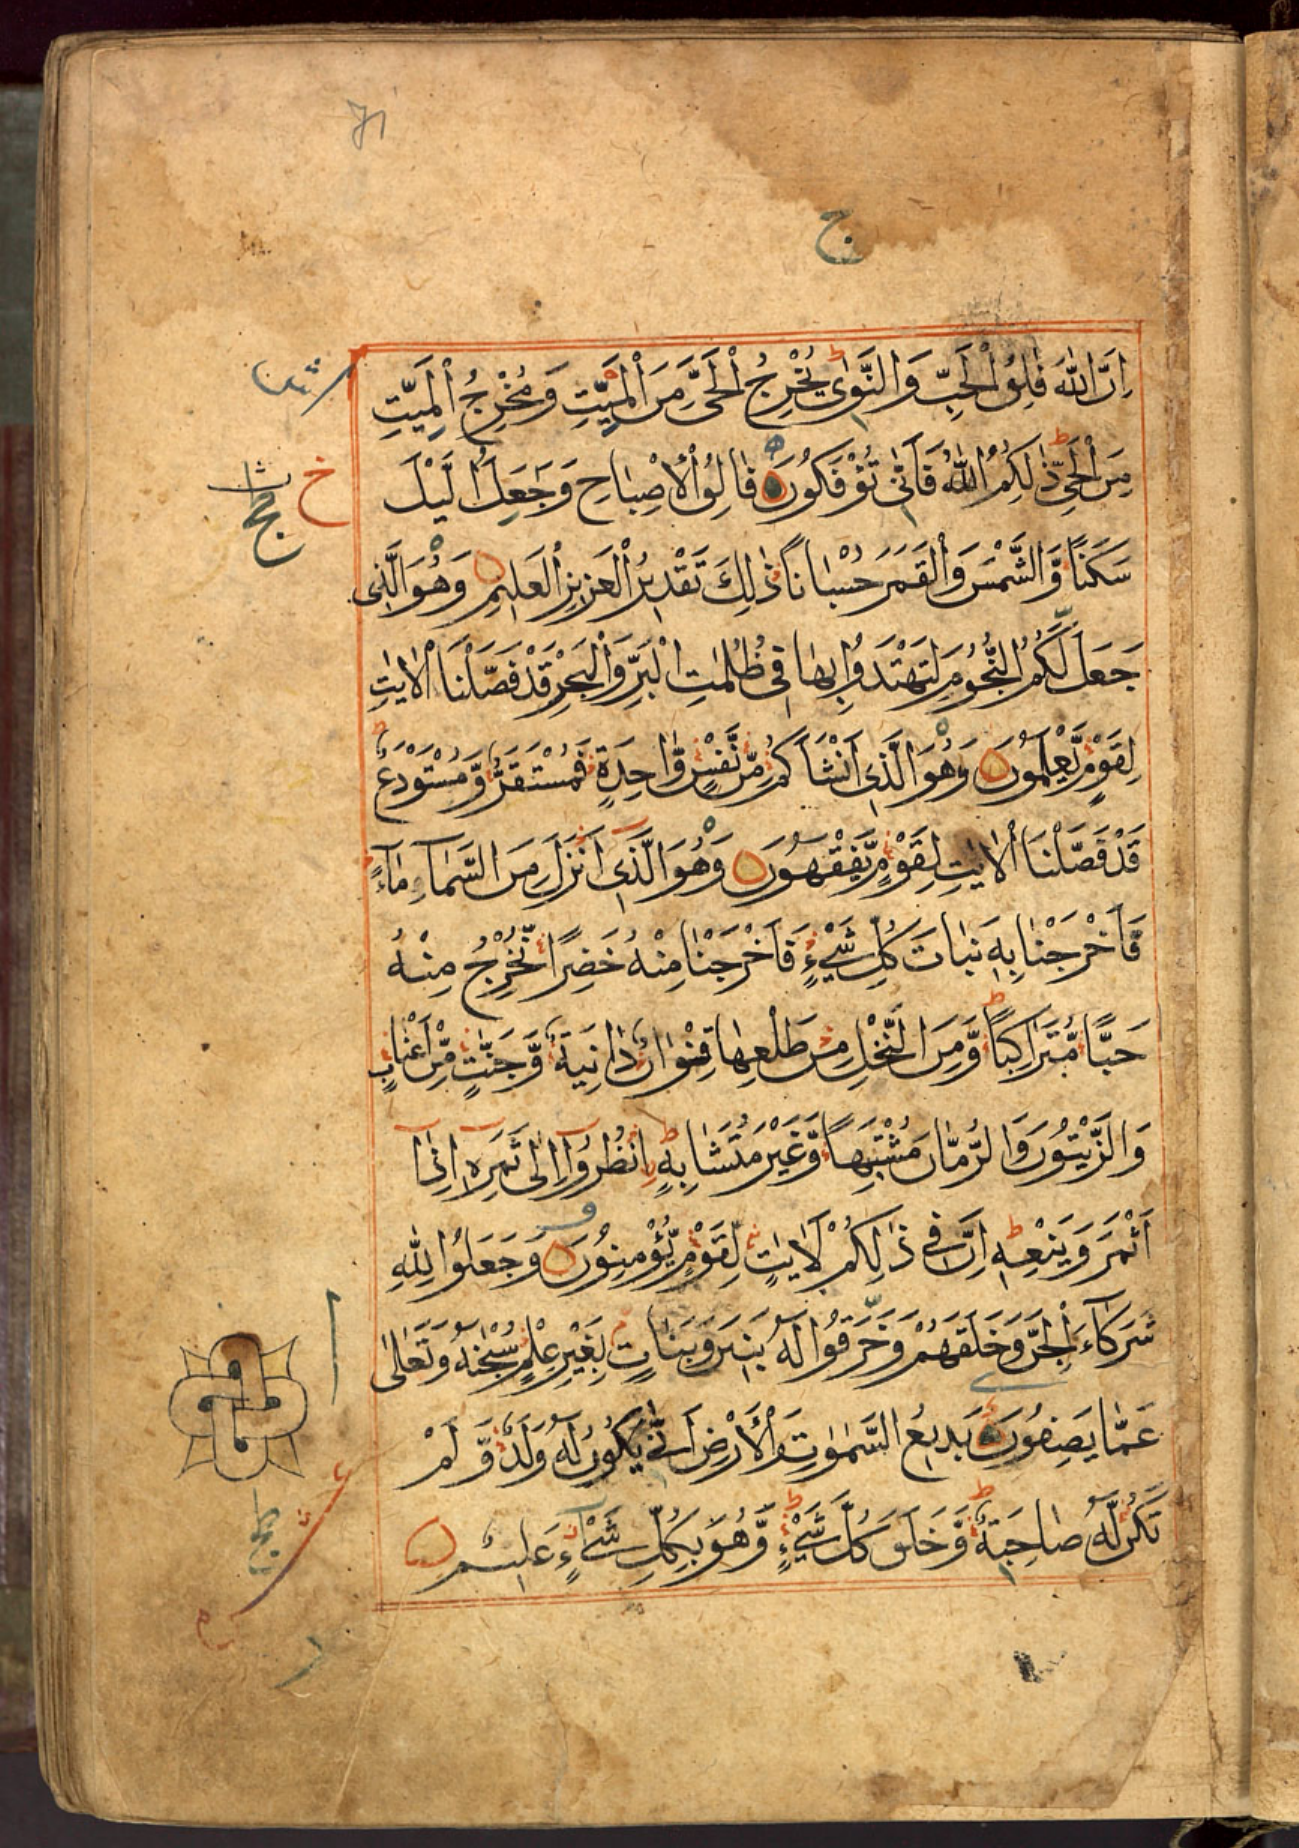 ج
اِنَّ اللّٰهَ فٰلِقُ الْحَبِّ وَالنَّوٰى يُخْرِجُ الْحَىَّ مِنَ الْمَيِّتِ وَمُخْرِجُ الْمَيِّتِ
مِنَ الْحَىِّ ذٰلِكُمُ اللّٰهُ فَاَنّٰى تُؤْفَكُوْنَ فَالِقُ الْاِصْبَاحِ وَجَعَلَ الَّيْلَ
سَكَنًا وَّالشَّمْسَ وَالْقَمَرَ حُسْبَانًا ذٰلِكَ تَقْدِيْرُ الْعَزِيْزِ الْعَلِيْمِ وَهُوَ الَّذِى
جَعَلَ لَكُمُ النُّجُوْمَ لِتَهْتَدُوْا بِهَا فِى ظُلُمٰتِ الْبَرِّ وَالْبَحْرِ قَدْ فَصَّلْنَا الْاٰيٰتِ
لِقَوْمٍ يَّعْلَمُوْنَ وَهُوَ الَّذِى اَنْشَاَكُمْ مِّنْ نَّفْسٍ وَّاحِدَةٍ فَمُسْتَقَرٌّ وَّمُسْتَوْدَعٌ
قَدْ فَصَّلْنَا الْاٰيٰتِ لِقَوْمٍ يَّفْقَهُوْنَ وَهُوَ الَّذِى اَنْزَلَ مِنَ السَّمَآءِ مَآءً
فَاَخْرَجْنَا بِهٖ نَبَاتَ كُلِّ شَيْءٍ فَاَخْرَجْنَا مِنْهُ خَضِرًا نُّخْرِجُ مِنْهُ
حَبًّا مُّتَرَاكِبًا وَّمِنَ النَّخْلِ مِنْ طَلْعِهَا قِنْوَانٌ دَانِيَةٌ وَّجَنّٰتٍ مِّنْ اَعْنَابٍ
وَالزَّيْتُوْنَ وَالرُّمَّانَ مُشْتَبِهًا وَّغَيْرَ مُتَشَابِهٍ اُنْظُرُوْٓا اِلٰى ثَمَرِهٖ اِذَا
اَثْمَرَ وَيَنْعِهٖ اِنَّ فِى ذٰلِكُمْ لَاٰيٰتٍ لِّقَوْمٍ يُّؤْمِنُوْنَ وَجَعَلُوْا لِلّٰهِ
شُرَكَآءَ الْجِنَّ وَخَلَقَهُمْ وَخَرَقُوْا لَهٗ بَنِيْنَ وَبَنَاتٍ بِغَيْرِ عِلْمٍ سُبْحٰنَهٗ وَتَعَالٰى
عَمَّا يَصِفُوْنَ بَدِيْعُ السَّمٰوٰتِ وَالْاَرْضِ اَنّٰى يَكُوْنُ لَهٗ وَلَدٌ وَّلَمْ
تَكُنْ لَّهٗ صَاحِبَةٌ وَّخَلَقَ كُلَّ شَيْءٍ وَّهُوَ بِكُلِّ شَيْءٍ عَلِيْمٌ